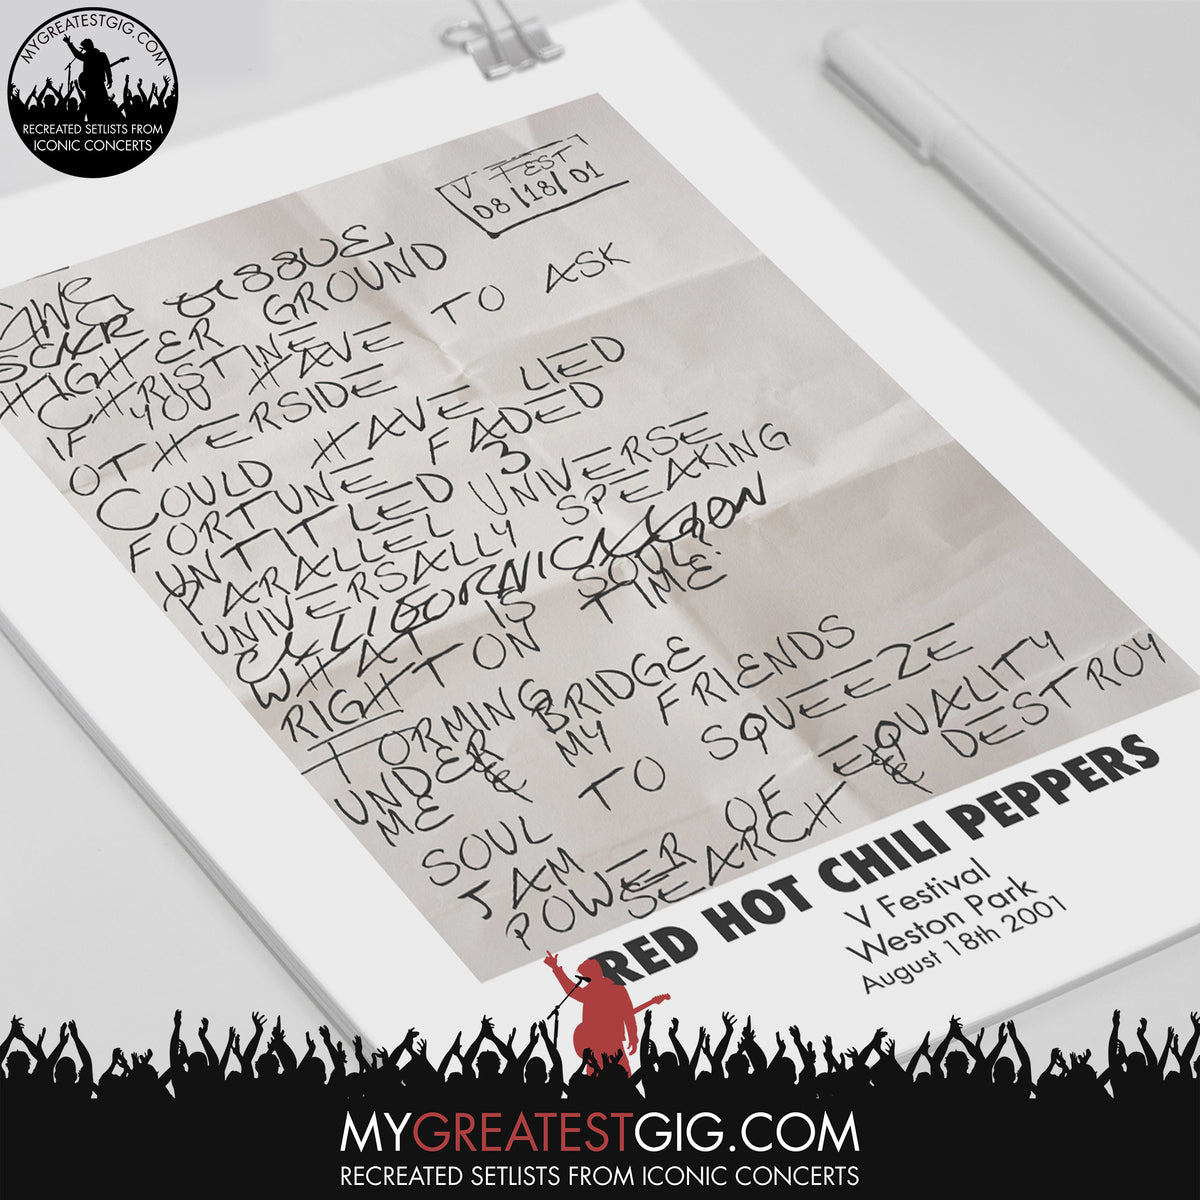 MYGREATESTGIG.COM
RECREATED SETLISTS FROM
ICONIC CONCERTS
V FEST
08/18/01
SCAR TISSUE
HIGHER GROUND
CHRISTINE
IF YOU HAVE TO ASK
OTHERSIDE
COULD HAVE LIED
FORTUNE FADED
UNTITLED 3
PARALLEL UNIVERSE
UNIVERSALLY SPEAKING
CALIFORNICATION
WHAT IS SOUL
RIGHT ON TIME
FORMING
UNDER BRIDGE
ME & MY FRIENDS
SOUL TO SQUEEZE
JAM
POWER OF EQUALITY
SEARCH & DESTROY
RED HOT CHILI PEPPERS
V Festival
Weston Park
August 18th 2001
MYGREATESTGIG.COM
RECREATED SETLISTS FROM ICONIC CONCERTS